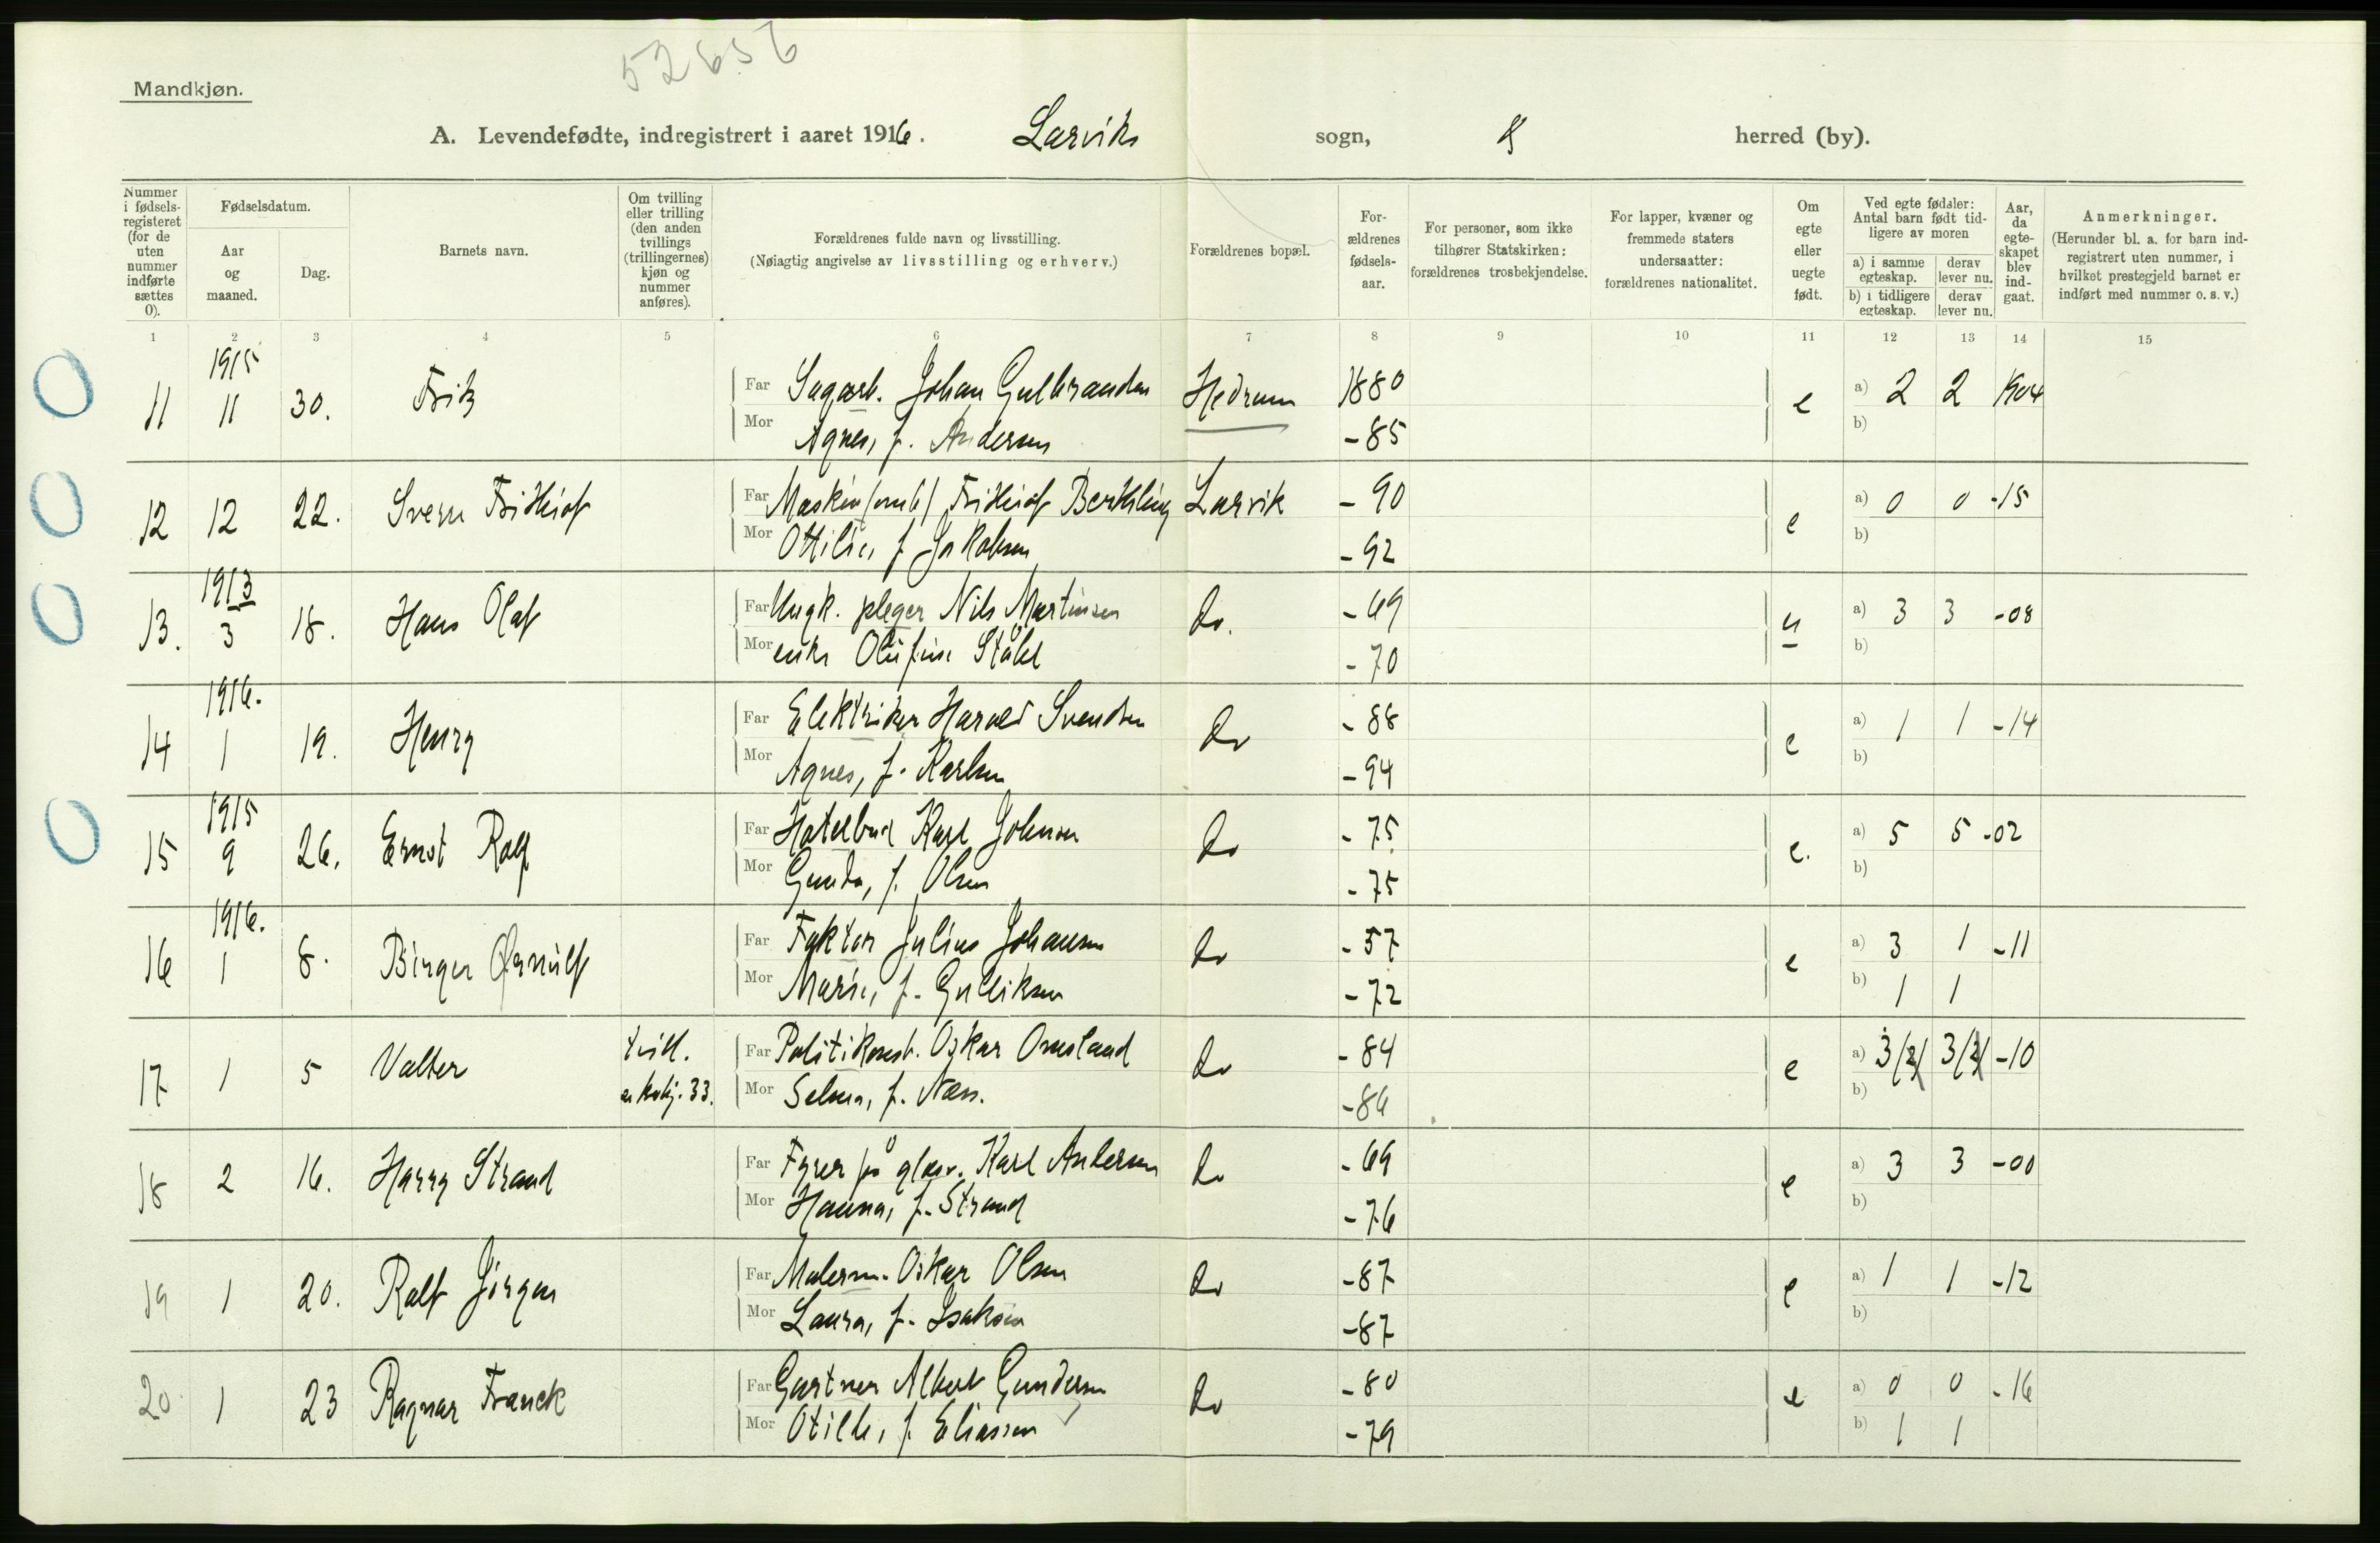 52656
Mandkjøn.
A. Levendefødte, indregistrert i aaret 1916. Larviks sogn, herred (by).
Nummer i fødsels-registeret (for de uten nummer indførte sættes 0).
Fødselsdatum.
Aar og maaned.
Dag.
Barnets navn.
Om tvilling eller trilling (den anden tvillings (trillingernes) kjøn og nummer anføres).
Forældrenes fulde navn og livsstilling.
(Nøiagtig angivelse av livsstilling og erhverv.)
Forældrenes bopæl.
For-ældrenes fødsels-aar.
For personer, som ikke tilhører Statskirken: forældrenes trosbekjendelse.
For lapper, kvæner og fremmede staters undersaatter: forældrenes nationalitet.
Om egte eller uegte født.
Ved egte fødsler: Antal barn født tid-ligere av moren
a) i samme egteskap. derav lever nu.
b) i tidligere egteskap. derav lever nu.
Aar, da egte-skapet blev ind-gaat.
Anmerkninger.
(Herunder bl. a. for barn ind-registrert uten nummer, i hvilket prestegjeld barnet er indført med nummer o. s. v.)
1 2 3 4 5 6 7 8 9 10 11 12 13 14 15
1915
11 11 30. Fritz Far Sagarb. Johan Gulbrandsen Hedrum 1880 e a) 2 2 1904
Mor Agnes, f. Andersen -85 b)
12 12 22. Sverre Fridthiof Far Fridthiof Berthling Larvik -90 e a) 0 0 -15
Mor Ottilie, f. Jakobsen -92 b)
1913
13. 3 18. Hans Olaf Far Ungk. pleger Nils Martinsen do. -69 u a) 3 3 -08
Mor enke Olufine Ståhl -70 b)
1916.
14 1 19. Henry Far Elektriker Harald Svendsen do -88 e a) 1 1 -14
Mor Agnes, f. Karlsen -94 b)
1915
15 9 26. Ernst Rolf Far Hotelbud Karl Johnsen do -75 e. a) 5 5 -02
Mor Gunda, f. Olsen -75 b)
1916.
16 1 8. Birger Ørnulf Far Faktor Julius Johansen do -57 e a) 3 1 -11
Mor Marie, f. Gulliksen -72 b) 1 1
17 1 5 Valter tvill. Far Politikonst. Oskar Omsland do -84 e a) 3 3 -10
33. Mor Selma, f. Næss. -86 b)
18 2 16. Harry Strand Far Fyrer på glasv. Karl Andersen do -69 e a) 3 3 -00
Mor Hanna, f. Strand -76 b)
19 1 20. Rolf Jørgen Far Malerm. Oskar Olsen do -87 e a) 1 1 -12
Mor Laura, f. Isaksen -87 b)
20 1 23 Ragnar Franck Far Gartner Albert Gundersen do -80 e a) 0 0 -16
Mor Otilde, f. Eliassen -79 b) 1 1